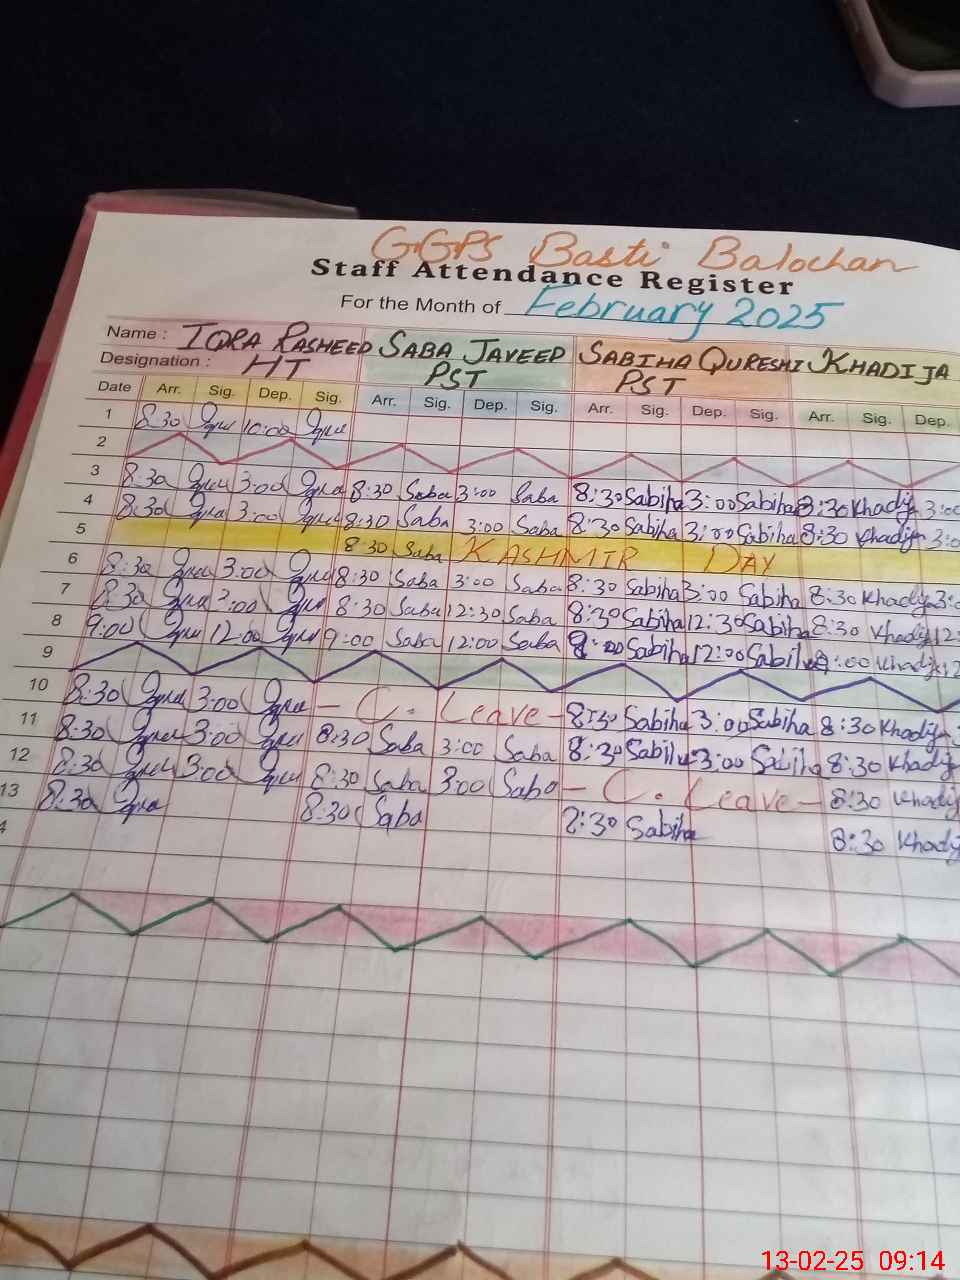 GGPS Basti Balochan
Staff Attendance Register
For the Month of February 2025
Name : IQRA RASHEED SABA JAVEED SABIHA QURESHI KHADIJA
Designation : HT PST PST
Date Arr. Sig. Dep. Sig. Arr. Sig. Dep. Sig. Arr. Sig. Dep. Sig. Arr. Sig. Dep.
1 8:30 Iqra 10:00 Iqra
2
3 8:30 Iqra 3:00 Iqra 8:30 Saba 3:00 Saba 8:30 Sabiha 3:00 Sabiha 8:30 Khadija 3:00
4 8:30 Iqra 3:00 Iqra 8:30 Saba 3:00 Saba 8:30 Sabiha 3:00 Sabiha 8:30 Khadija 3:0
5 8:30 Saba KASHMIR DAY
6 8:30 Iqra 3:00 Iqra 8:30 Saba 3:00 Saba 8:30 Sabiha 3:00 Sabiha 8:30 Khadija 3:
7 8:30 Iqra Iqra 8:30 Saba 12:30 Saba 8:30 Sabiha 12:30 Sabiha 8:30 Khadija 12:
8 9:00 Iqra 12:00 Iqra 9:00 Saba 12:00 Saba Sabiha 12:00 Sabiha :00 Khadija 12
9
10 8:30 Iqra 3:00 Iqra - C. Leave - 8:30 Sabiha 3:00 Sabiha 8:30 Khadija
11 8:30 Iqra 3:00 Iqra 8:30 Saba 3:00 Saba 8:30 Sabiha 3:00 Sabiha 8:30 Khadij
12 8:30 Iqra 3:00 Iqra 8:30 Saba 3:00 Saba - C. Leave - 8:30 Khadij
13 8:30 Iqra 8:30 Saba 8:30 Sabiha 8:30 Khadij
4
13-02-25 09:14